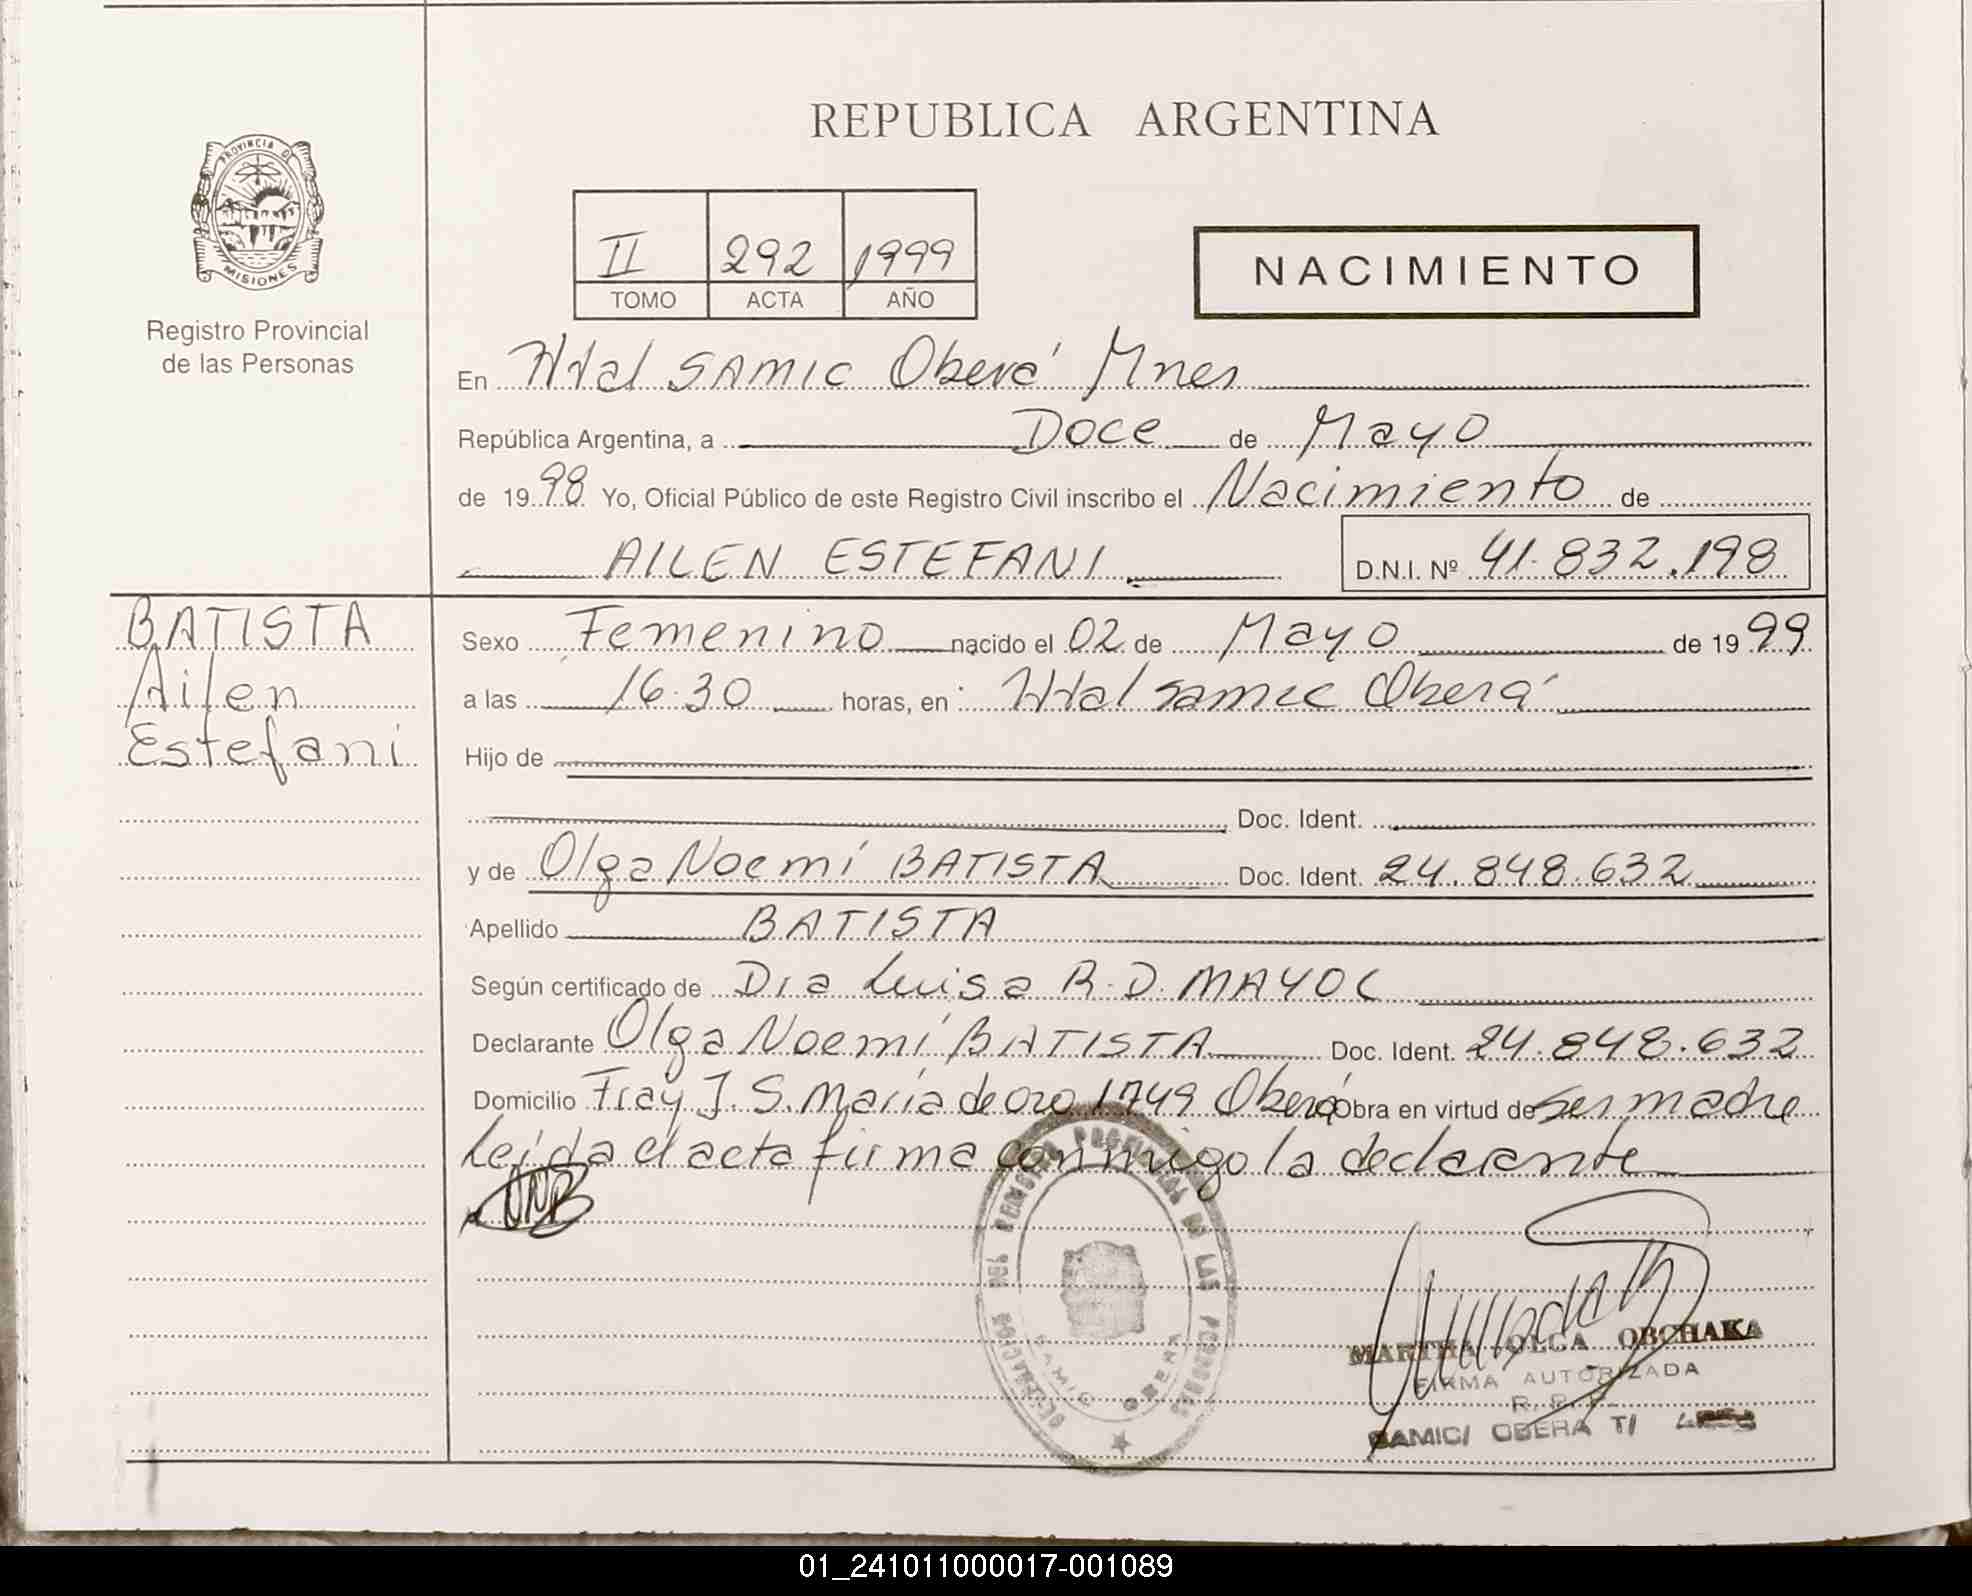 REPUBLICA ARGENTINA
PROVINCIA D
MISIONES
Registro Provincial
de las Personas
II 292 1999
TOMO ACTA AÑO
NACIMIENTO
En Htal SAMIC Oberá Mnes
República Argentina, a Doce de Mayo
de 1998 Yo, Oficial Público de este Registro Civil inscribo el Nacimiento de
AILEN ESTEFANI D.N.I. Nº 41.832.198
BATISTA
Ailen
Estefani
Sexo Femenino nacido el 02 de Mayo de 1999
a las 16.30 horas, en Htal samic Oberá
Hijo de
Doc. Ident.
y de Olga Noemí BATISTA Doc. Ident. 24.848.632
Apellido BATISTA
Según certificado de Dra Luisa R.D. MAYOL
Declarante Olga Noemí BATISTA Doc. Ident. 24.848.632
Domicilio Fray J. S. María de oro 1749 Oberá Obra en virtud de ser madre
Leída el acta firma conmigo la declarante
ONB
DEL REGISTRO PROVINCIAL DE LAS PERSONAS
SAMIC OBERA
MARTHA OLGA OBCHAKA
FIRMA AUTORIZADA
R. P. P.
SAMIC/ OBERA T/
01_241011000017-001089